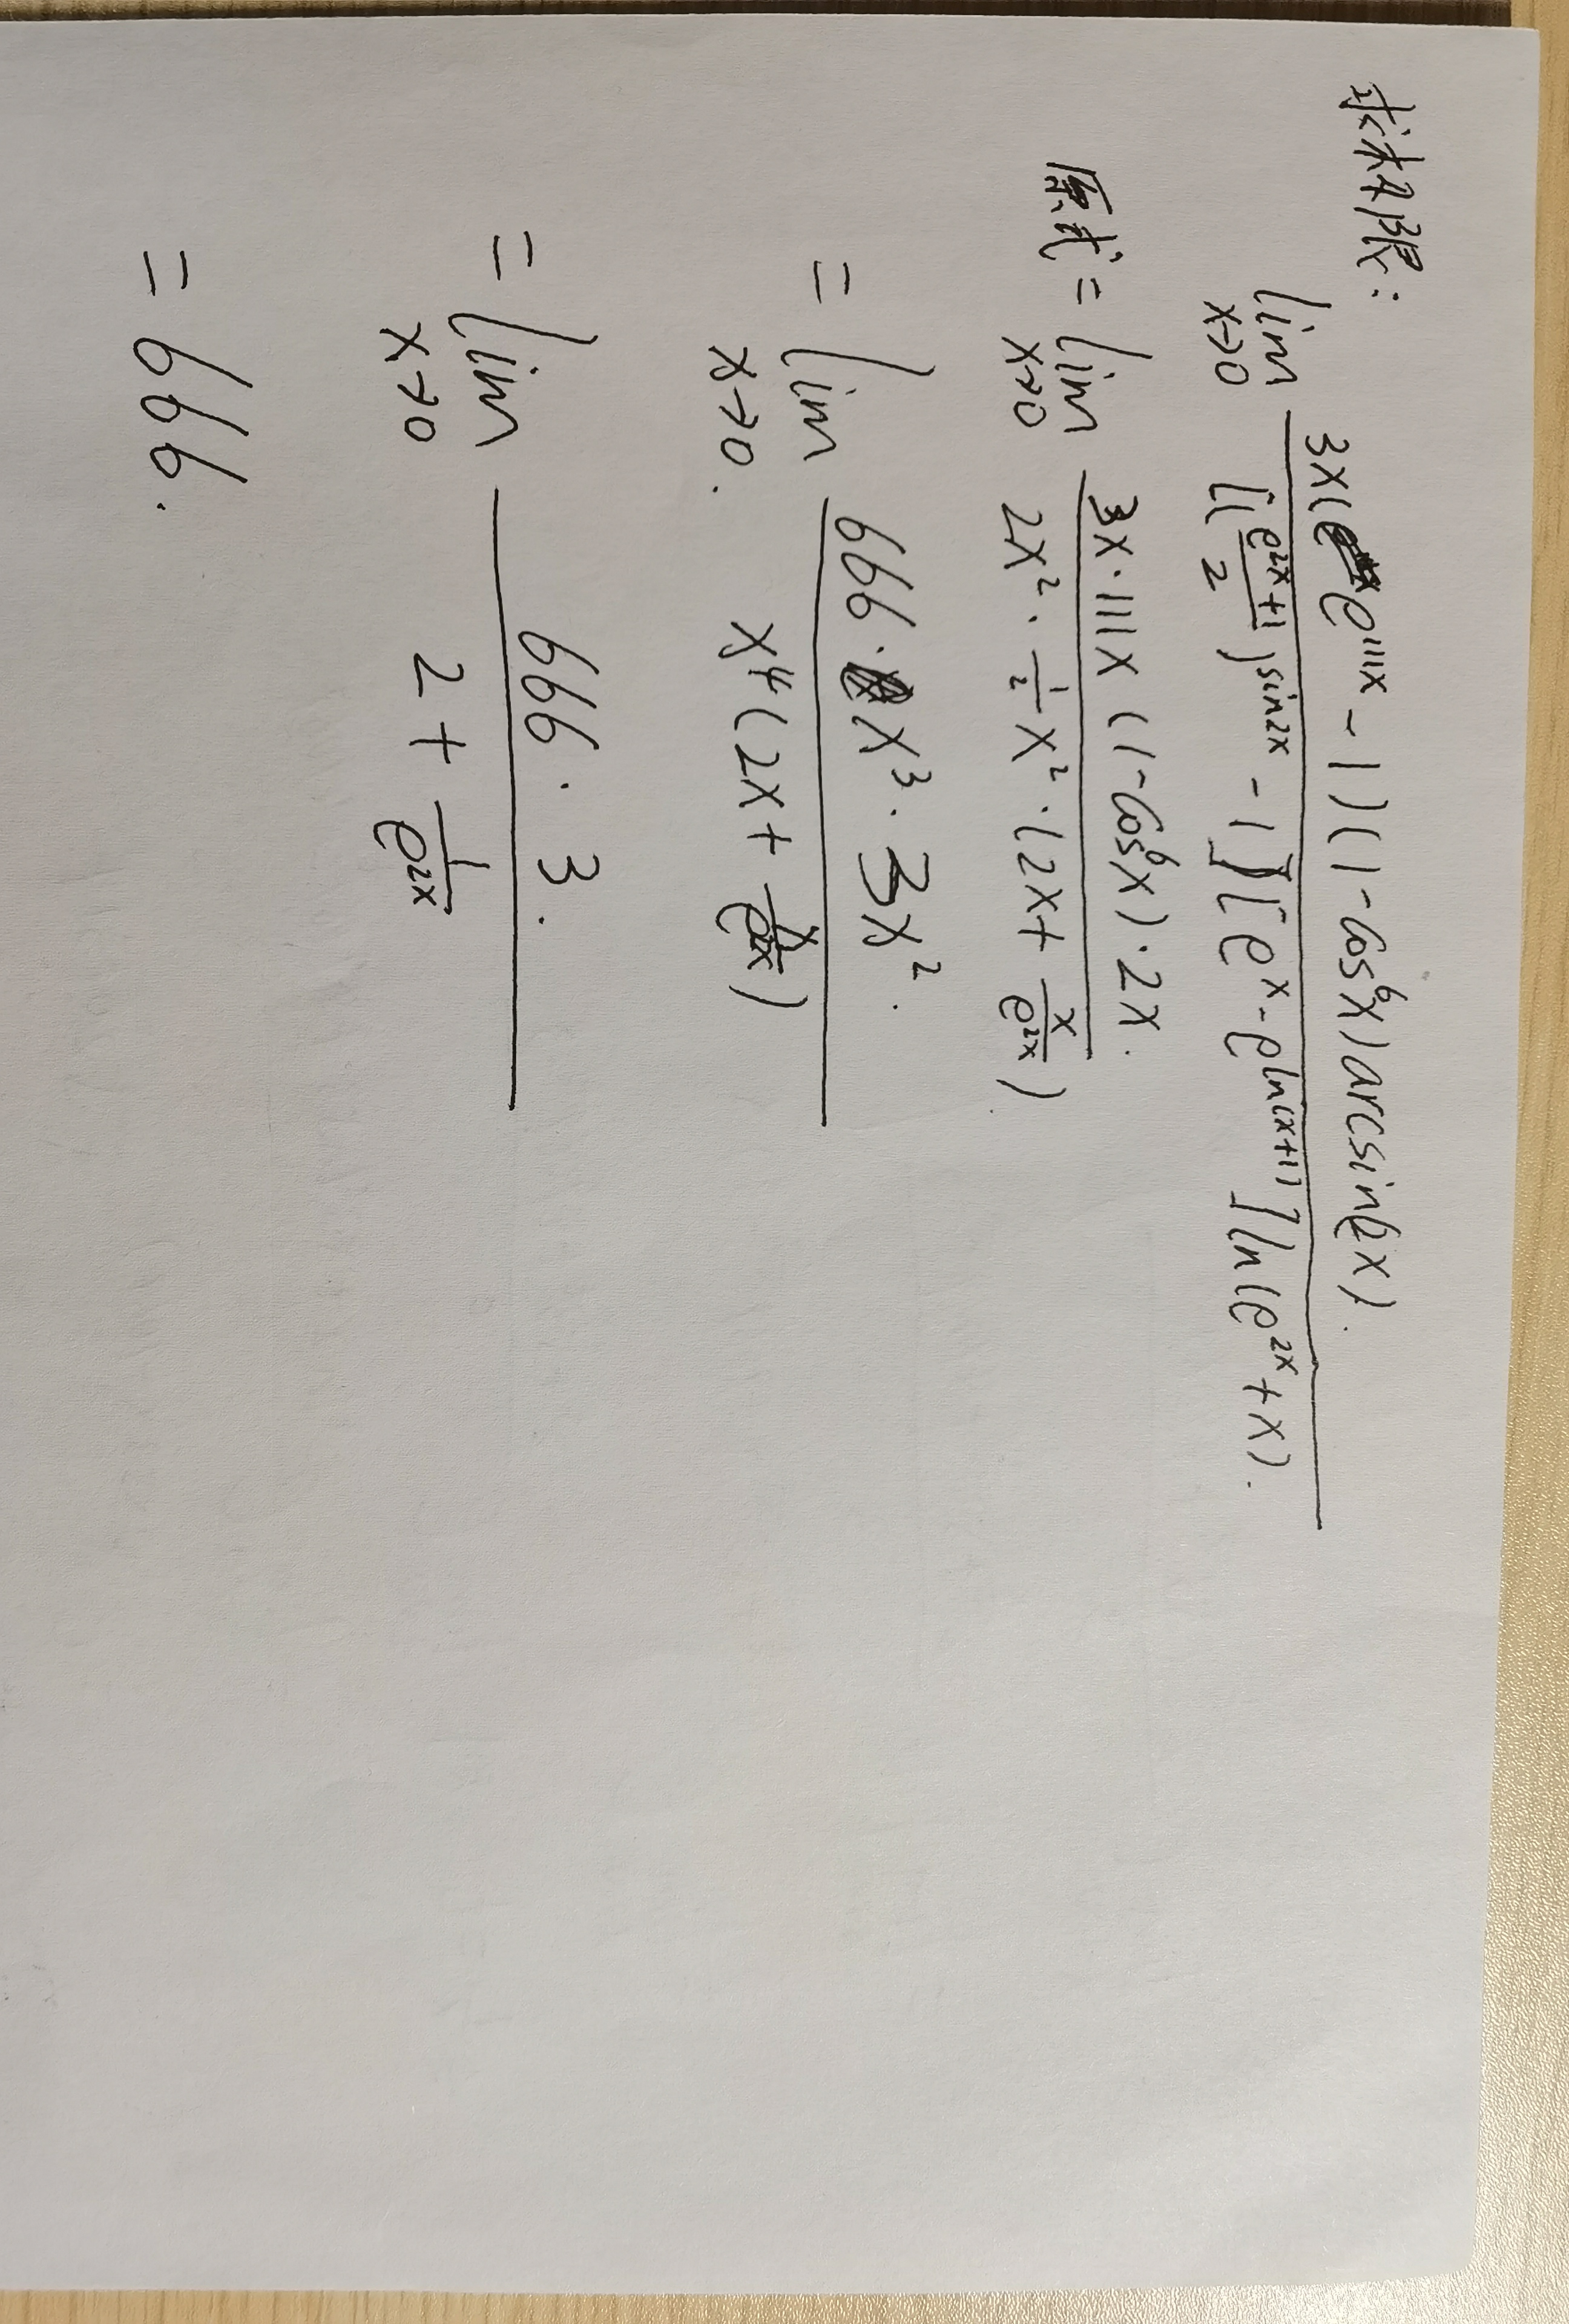 求极限:
lim x→0 3x(e^{111x} - 1)(1 - cos⁶x) arcsin(2x). / [((e^{2x}+1)/2)^{sin2x} - 1][e^x - e^{ln(x+1)}] ln(e^{2x} + x).
原式 = lim x→0 3x·111x (1 - cos⁶x)·2x. / 2x²·½x²·(2x + x/e^{2x})
= lim x→0. 666·x³·3x². / x⁴(2x + x/e^{2x})
= lim x→0 666·3. / 2 + 1/e^{2x}
= 666.